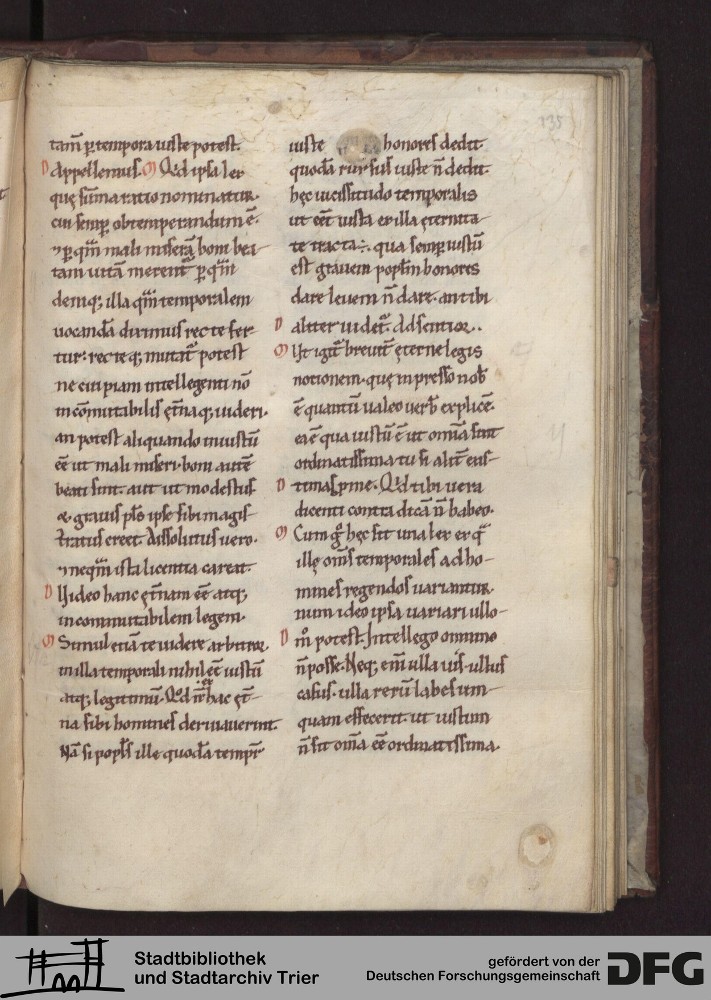 tam̄ p̄ tempora iuste potest.
Appellemus. Q̄d ipsa lex
quę sūma ratio nominatur.
cui semꝑ obtemperandum ē.
⁊ ꝑ quā mali miserā boni bea-
tam uitā merent̄ ꝑ quā
demiq; illa quā temporalem
uocandā diximus recte fer-
tur: recteq; mutari potest
ne cui piam intellegenti nō
incōmutabilis ęt̄naq; uideri.
an potest aliquando iniustū
eē ut mali miseri. boni autē
beati sint. aut ut modestus
& grauis pl̄s ipse sibi magis-
tratus creet. Dissolutus uero.
⁊ nequā ista licentia careat.
D Uideo hanc ęt̄nam eē atq;
incommutabilem legem.
M Simul etiā te uidere arbitror.
in illa temporali nihil eē iustū
atq; legitimū. Qd̄ n̄ ex hac ęt̄-
na sibi homines deriuauerint.
Nā si popl̄s ille quodā tempr̄
iuste honores dedit.
quodā rursus iuste n̄ dedit.
hęc uicissitudo temporalis
ut eēt iusta ex illa ęternita-
te tracta ÷. qua semꝑ iustū
est grauem popl̄m honores
dare leuem n̄ dare. an tibi
D aliter uidet̄. Adsentior..
M Ut igit̄ breuit̄ ęterne legis
notionem. quę inpressa nob̄
ē quantū ualeo uerb̄ explicē.
ea ē qua iustū ē ut om̄ia sint
ordinatissima tu si alit̄ exis-
D timas ꝓme. Q̄d tibi uera
dicenti contra dicā n̄ habeo.
M Cum g̊ hęc sit una lex ex q̄
illę om̄s temporales ad ho-
mines regendos uariantur.
num ideo ipsa uariari ullo-
D m̊ potest. Intellego omnino
n̄ posse. Neq; enī ulla uis. ullus
casus. ulla rerū labes um-
quam effecerit ut iustum
n̄ sit om̄ia eē ordinatissima.
135
Stadtbibliothek
und Stadtarchiv Trier
gefördert von der
Deutschen Forschungsgemeinschaft
DFG